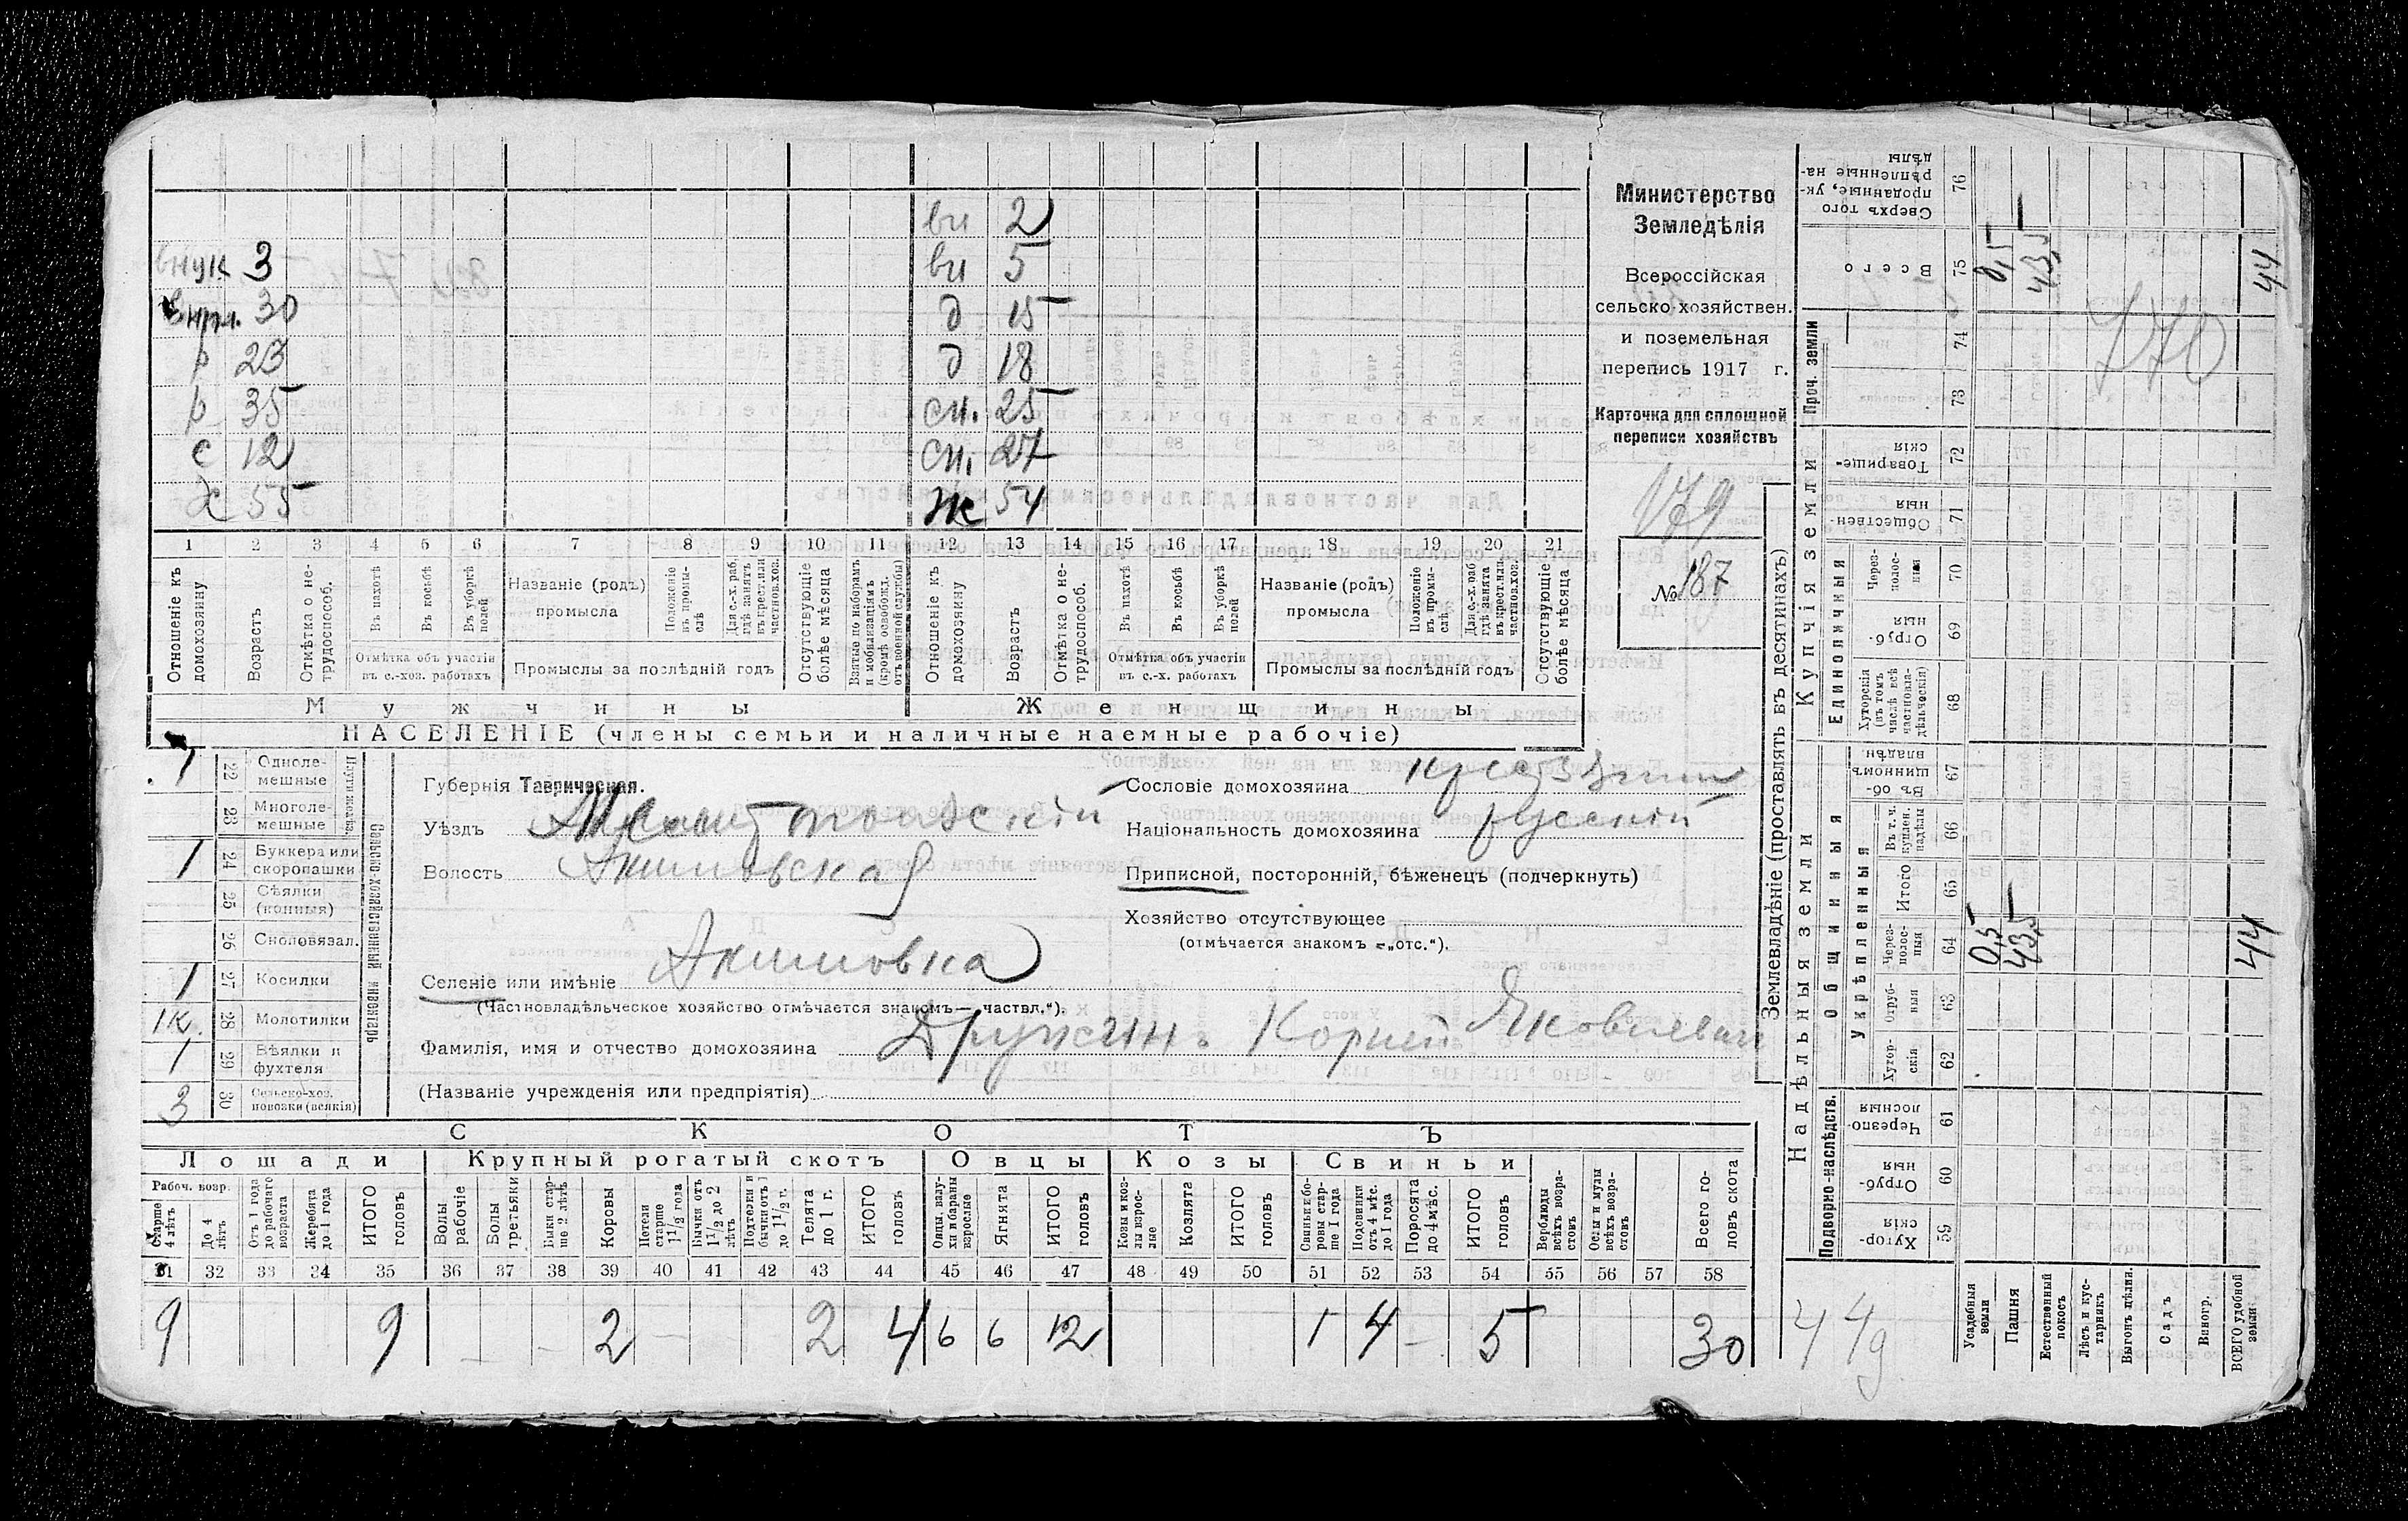 вн 2
внук 3 вн 5
30 д 15
р 23 д 18
р 35 сн. 25
с 12 сн. 27
х 55 ж 54
1 2 3 4 5 6 7 8 9 10 11 12 13 14 15 16 17 18 19 20 21
Отношеніе къ домохозяину
Возрастъ
Отмѣтка о не-трудоспособ.
Въ пахотѣ
Въ косьбѣ
Въ уборкѣ полей
Отмѣтка объ участіи въ с.-хоз. работахъ
Названіе (родъ) промысла
Положеніе въ промы-слѣ
Для с.-х. раб. гдѣ занятъ въ крест. или частнов. хоз.
Промыслы за послѣдній годъ
Отсутствующіе болѣе мѣсяца
Взятые по наборамъ и мобилизаціямъ (кромѣ освобожд. отъ военной службы)
Отношеніе къ домохозяину
Возрастъ
Отмѣтка о не-трудоспособ.
Въ пахотѣ
Въ косьбѣ
Въ уборкѣ полей
Отмѣтка объ участіи въ с.-х. работахъ
Названіе (родъ) промысла
Положеніе въ промы-слѣ
Для с.-х. раб. гдѣ занята въ крест. или частнов. хоз.
Промыслы за послѣдній годъ
Отсутствующіе болѣе мѣсяца
Мужчины Женщины
НАСЕЛЕНІЕ (члены семьи и наличные наемные рабочіе)
Министерство
Земледѣлія
Всероссійская
сельско-хозяйствен.
и поземельная
перепись 1917 г.
Карточка для сплошной
переписи хозяйствъ
179
№ 187
Сельско-хозяйственный инвентарь
1 22 Одноле-мешные
23 Многоле-мешные
1 24 Буккера или скоропашки
25 Сѣялки (конныя)
26 Сноповязал.
1 27 Косилки
1к. 28 Молотилки
1 29 Вѣялки и фухтеля
3 30 Сельско-хоз. повозки (всякія)
Губернія Таврическая.
Уѣздъ Мелитопольскій
Волость Акимовская
Селеніе или имѣніе Акимовка
(Частновладѣльческое хозяйство отмѣчается знакомъ—„частвл.“).
Фамилія, имя и отчество домохозяина Дружинъ Корней Яковлевич
(Названіе учрежденія или предпріятія)
Сословіе домохозяина крестьянин
Національность домохозяина русскій
Приписной, посторонній, бѣженецъ (подчеркнуть)
Хозяйство отсутствующее
(отмѣчается знакомъ =„отс.“).
СКОТЪ
Лошади Крупный рогатый скотъ Овцы Козы Свиньи
Рабоч. возр.
Старше 4 лѣтъ
До 4 лѣтъ
Отъ 1 года до рабочаго возраста
Жеребята до 1 года
ИТОГО головъ
Волы рабочіе
Волы третьяки
Быки стар-ше 2 лѣтъ
Коровы
Нетели старше 1 1/2 года
Бычки отъ 1 1/2 до 2 лѣтъ
Подтелки и бычки отъ 1 до 1 1/2 г.
Телята до 1 г.
ИТОГО головъ
Овцы, валу-хи и бараны взрослые
Ягнята
ИТОГО головъ
Козы и коз-лы взрос-лые
Козлята
ИТОГО головъ
Свиньи и бо-ровы стар-ше 1 года
Подсвинки отъ 4 мѣс. до 1 года
Поросята до 4 мѣс.
ИТОГО головъ
Верблюды всѣхъ возра-стовъ
Ослы и мулы всѣхъ возра-стовъ
Всего го-ловъ скота
31 32 33 34 35 36 37 38 39 40 41 42 43 44 45 46 47 48 49 50 51 52 53 54 55 56 57 58
9 9 - - 2 - 2 4 6 6 12 1 4 - 5 30
Землевладѣніе (проставлять въ десятинахъ)
Надѣльныя земли Купчія земли Проч. земли
Подворно-наслѣдств. Общинныя Единоличныя
Укрѣпленныя
Хутор-скія 59
Отруб-ныя 60
Черезпо-лосныя 61
Хутор-скія 62
Отруб-ныя 63
Через-полос-ныя 64
Итого 65
Въ т. ч. куплен. надѣлы 66
Въ об-щинномъ владѣн. 67
Хуторскія (въ томъ числѣ всѣ частновла-дѣльческія) 68
Отруб-ныя 69
Через-полос-ныя 70
Обществен-ныя 71
Товарище-скія 72
73
74
Всего 75
Сверхъ того проданные, ук-рѣпленные на-дѣлы 76
Усадебныя земли 0,5 0,5
Пашня 43,5 43,5
Естественный покосъ
Лѣсъ и кус-тарникъ
Выгонъ цѣлин.
Садъ
Виногр.
ВСЕГО удобной земли 44 44